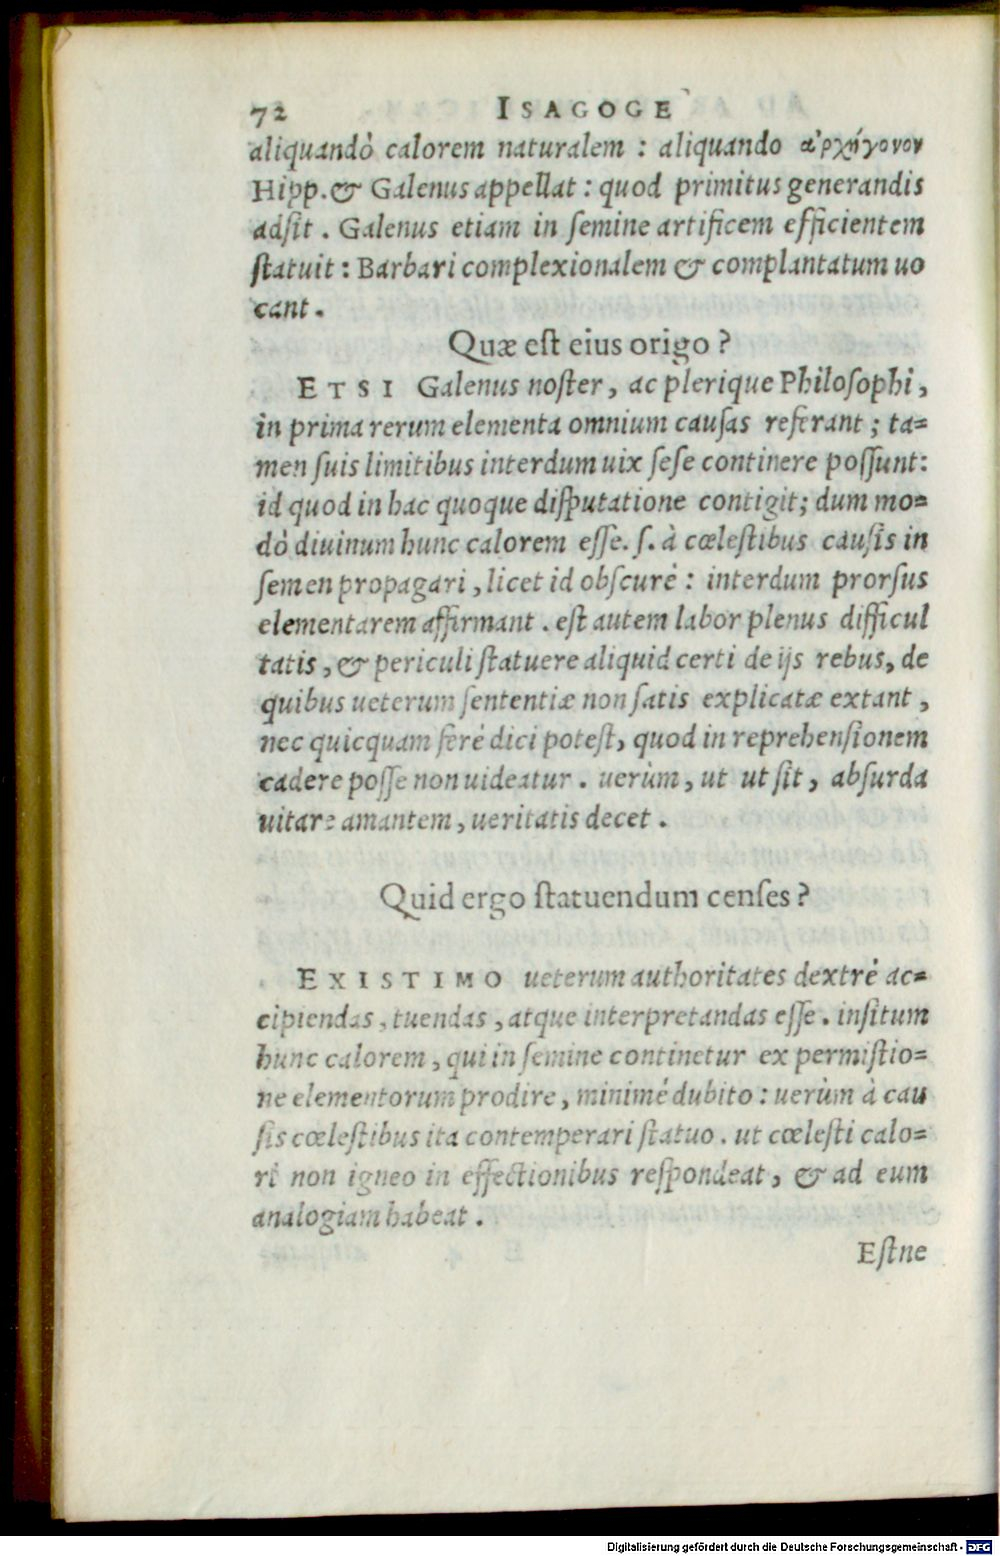 72 ISAGOGE
aliquandò calorem naturalem : aliquando ἀρχήγονον
Hipp. & Galenus appellat : quod primitus generandis
adsit . Galenus etiam in semine artificem efficientem
statuit : Barbari complexionalem & complantatum uo
cant .
Quæ est eius origo ?
ETSI Galenus noster , ac plerique Philosophi ,
in prima rerum elementa omnium causas referant ; ta=
men suis limitibus interdum uix sese continere possunt :
id quod in hac quoque disputatione contigit ; dum mo=
dò diuinum hunc calorem esse . s . à cœlestibus causis in
semen propagari , licet id obscuré : interdum prorsus
elementarem affirmant . est autem labor plenus difficul
tatis , & periculi statuere aliquid certi de ijs rebus , de
quibus ueterum sententiæ non satis explicatæ extant ,
nec quicquam feré dici potest , quod in reprehensionem
cadere posse non uideatur . uerùm , ut ut sit , absurda
uitare amantem , ueritatis decet .
Quid ergo statuendum censes ?
EXISTIMO ueterum authoritates dextré ac=
cipiendas , tuendas , atque interpretandas esse . insitum
hunc calorem , qui in semine continetur ex permistio=
ne elementorum prodire , minimé dubito : uerùm à cau
sis cœlestibus ita contemperari statuo . ut cœlesti calo=
ri non igneo in effectionibus respondeat , & ad eum
analogiam habeat .
Estne
Digitalisierung gefördert durch die Deutsche Forschungsgemeinschaft - DFG